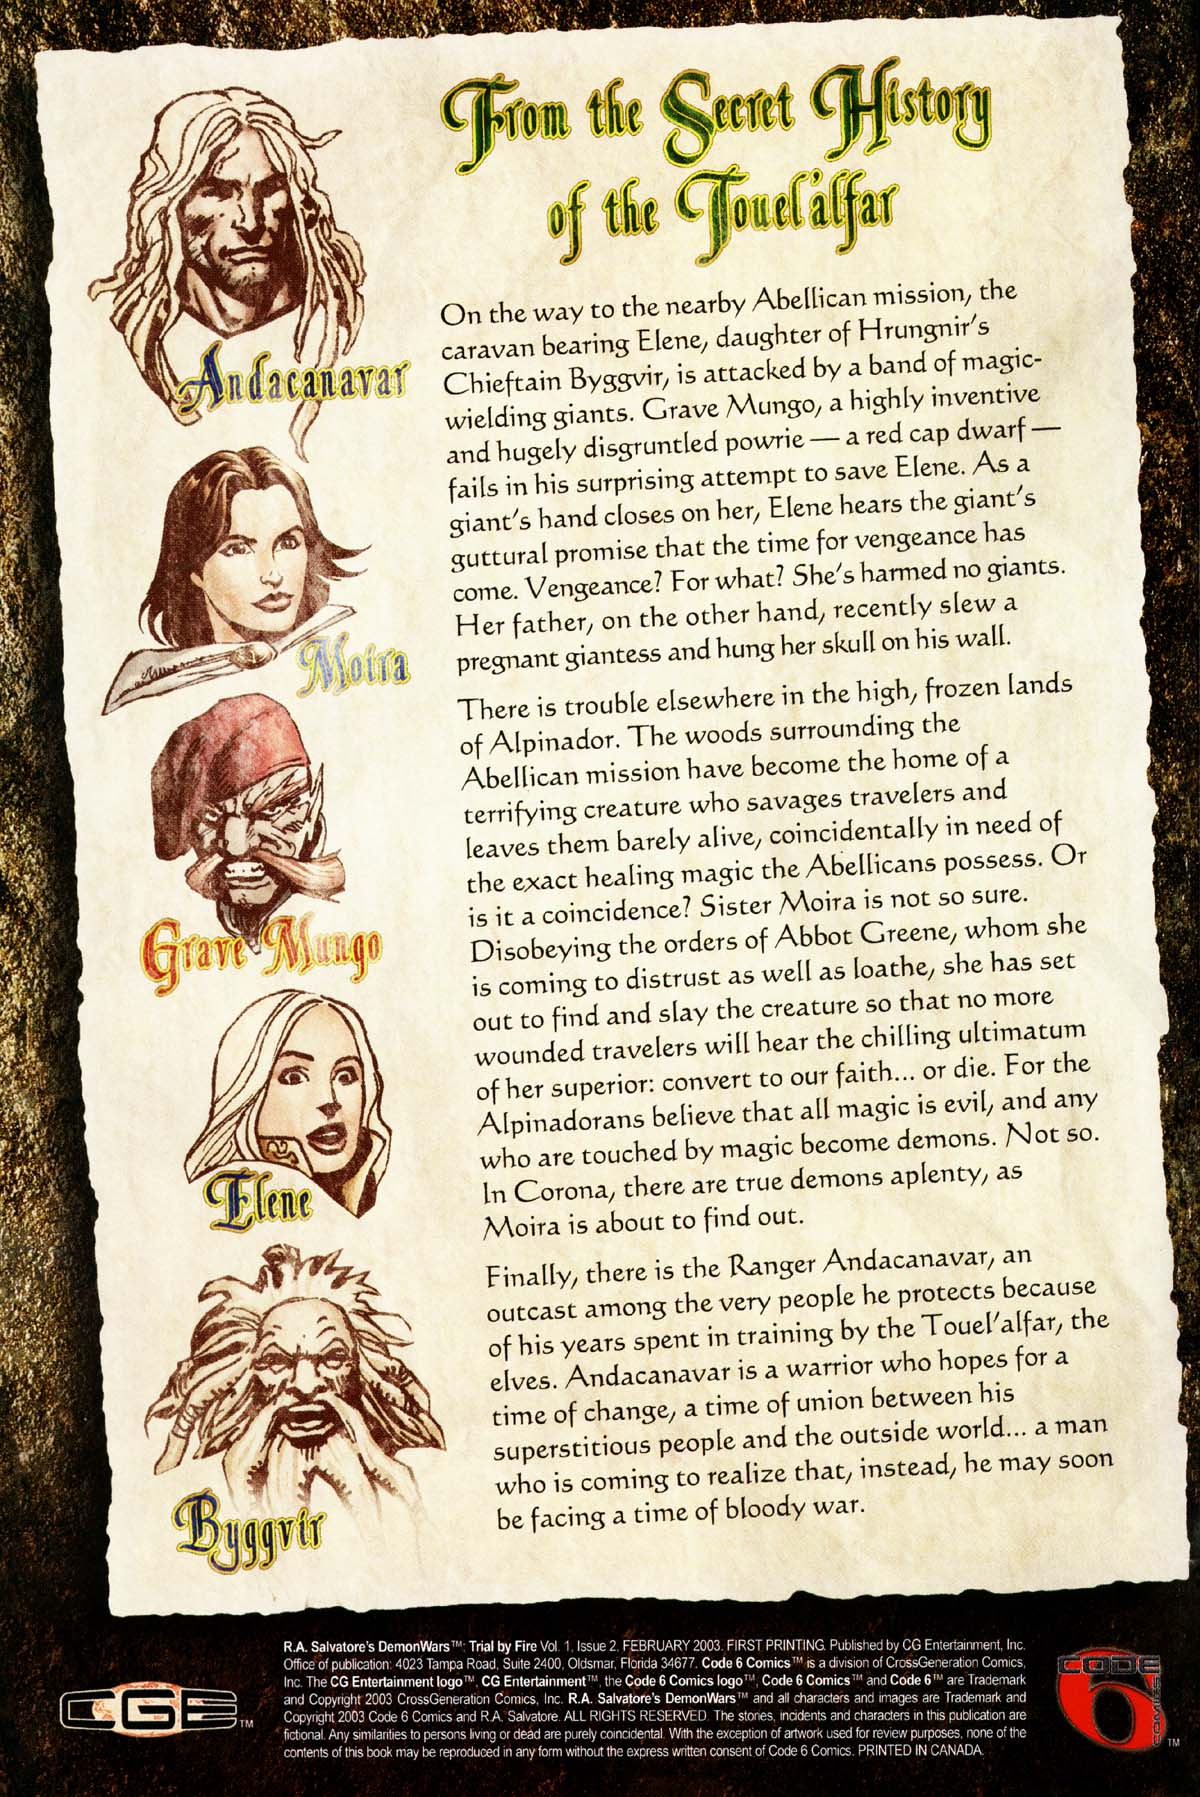 From the Secret History
of the Touel'alfar
Andacanavar
Moira
Grave Mungo
Elene
Byggvir
On the way to the nearby Abellican mission, the
caravan bearing Elene, daughter of Hrungnir's
Chieftain Byggvir, is attacked by a band of magic-
wielding giants. Grave Mungo, a highly inventive
and hugely disgruntled powrie — a red cap dwarf —
fails in his surprising attempt to save Elene. As a
giant's hand closes on her, Elene hears the giant's
guttural promise that the time for vengeance has
come. Vengeance? For what? She's harmed no giants.
Her father, on the other hand, recently slew a
pregnant giantess and hung her skull on his wall.
There is trouble elsewhere in the high, frozen lands
of Alpinador. The woods surrounding the
Abellican mission have become the home of a
terrifying creature who savages travelers and
leaves them barely alive, coincidentally in need of
the exact healing magic the Abellicans possess. Or
is it a coincidence? Sister Moira is not so sure.
Disobeying the orders of Abbot Greene, whom she
is coming to distrust as well as loathe, she has set
out to find and slay the creature so that no more
wounded travelers will hear the chilling ultimatum
of her superior: convert to our faith... or die. For the
Alpinadorans believe that all magic is evil, and any
who are touched by magic become demons. Not so.
In Corona, there are true demons aplenty, as
Moira is about to find out.
Finally, there is the Ranger Andacanavar, an
outcast among the very people he protects because
of his years spent in training by the Touel'alfar, the
elves. Andacanavar is a warrior who hopes for a
time of change, a time of union between his
superstitious people and the outside world... a man
who is coming to realize that, instead, he may soon
be facing a time of bloody war.
CGE TM
R.A. Salvatore's DemonWars™: Trial by Fire Vol. 1, Issue 2, FEBRUARY 2003. FIRST PRINTING. Published by CG Entertainment, Inc.
Office of publication: 4023 Tampa Road, Suite 2400, Oldsmar, Florida 34677. Code 6 Comics™ is a division of CrossGeneration Comics,
Inc. The CG Entertainment logo™, CG Entertainment™, the Code 6 Comics logo™, Code 6 Comics™ and Code 6™ are Trademark
and Copyright 2003 CrossGeneration Comics, Inc. R.A. Salvatore's DemonWars™ and all characters and images are Trademark and
Copyright 2003 Code 6 Comics and R.A. Salvatore. ALL RIGHTS RESERVED. The stories, incidents and characters in this publication are
fictional. Any similarities to persons living or dead are purely coincidental. With the exception of artwork used for review purposes, none of the
contents of this book may be reproduced in any form without the express written consent of Code 6 Comics. PRINTED IN CANADA.
CODE
6
COMICS
TM